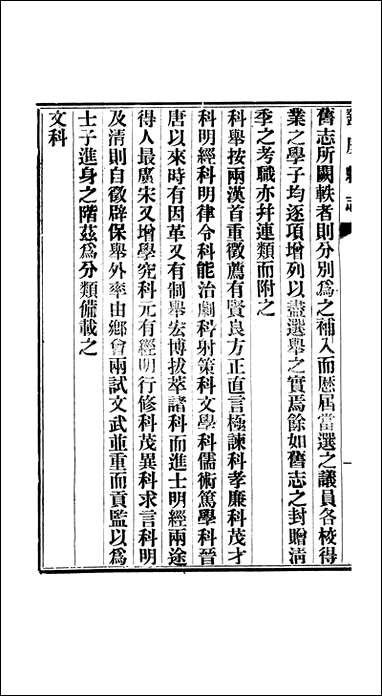 舊志所闕軼者則分別爲之補入而歷屆當選之議員各校得
業之學子均逐項增列以盡選舉之實焉餘如舊志之封贈淸
季之考職亦幷連類而附之
科舉按兩漢首重徵薦有賢良方正直言極諫科孝廉科茂才
科明經科明律令科能治劇科射策科文學科儒術篤學科晉
唐以來時有因革又有制舉宏博拔萃諸科而進士明經兩途
得人最廣宋又增學究科元有經明行修科茂異科求言科明
及清則自徵辟保舉外率由鄉會兩試文武並重而貢監以爲
士子進身之階茲爲分類備載之
文科